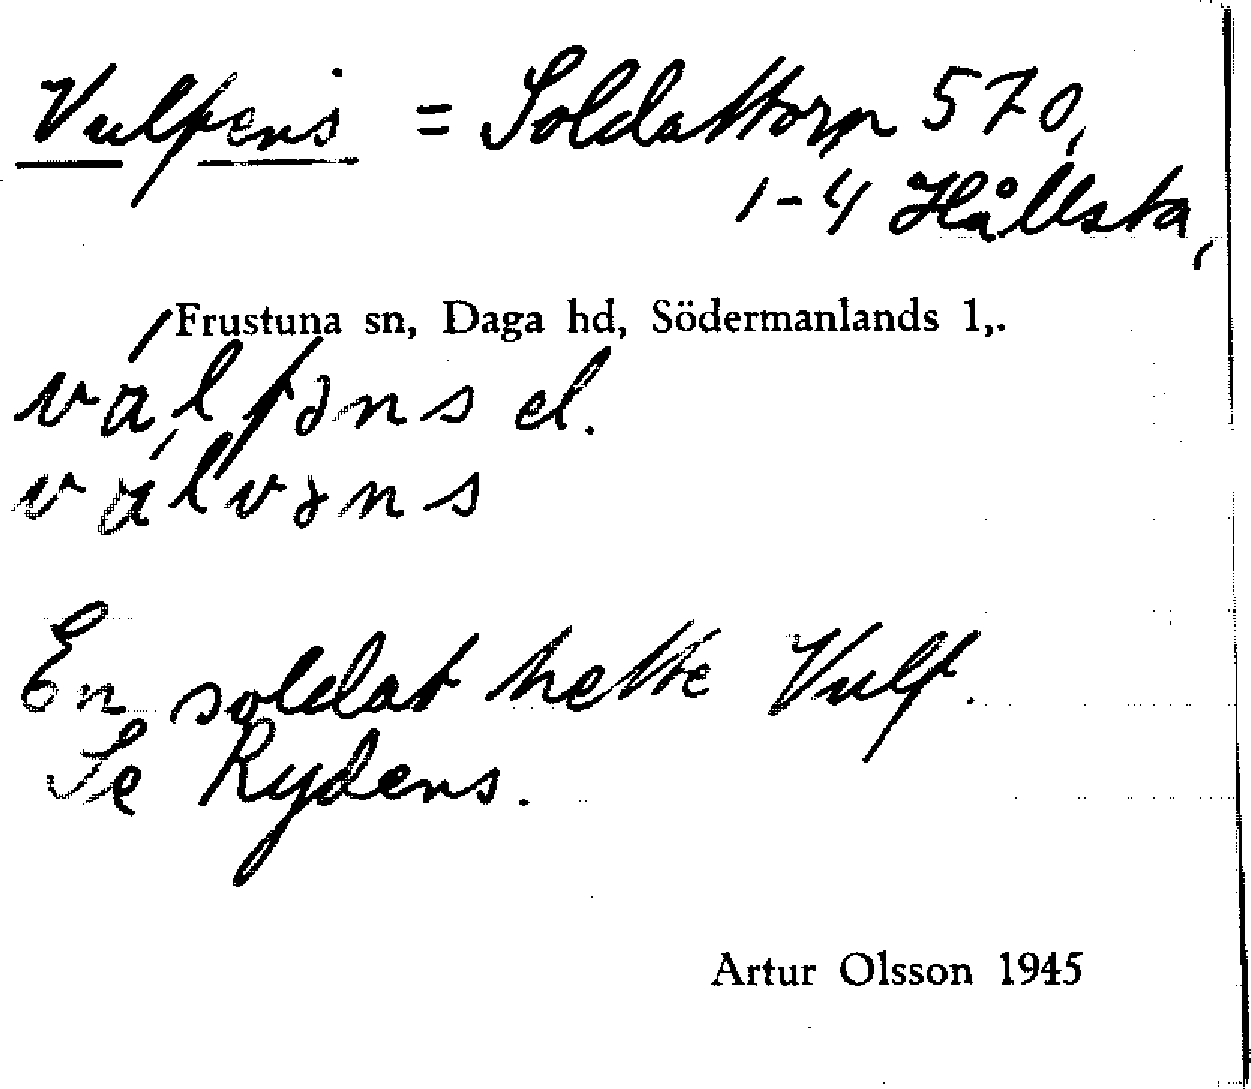 Vulfens = Soldattorp 570,
1-4 Hållsta,
Frustuna sn, Daga hd, Södermanlands l,.
válfəns el.
válvəns
En soldat hette Vulf.
Se Rydens.
Artur Olsson 1945